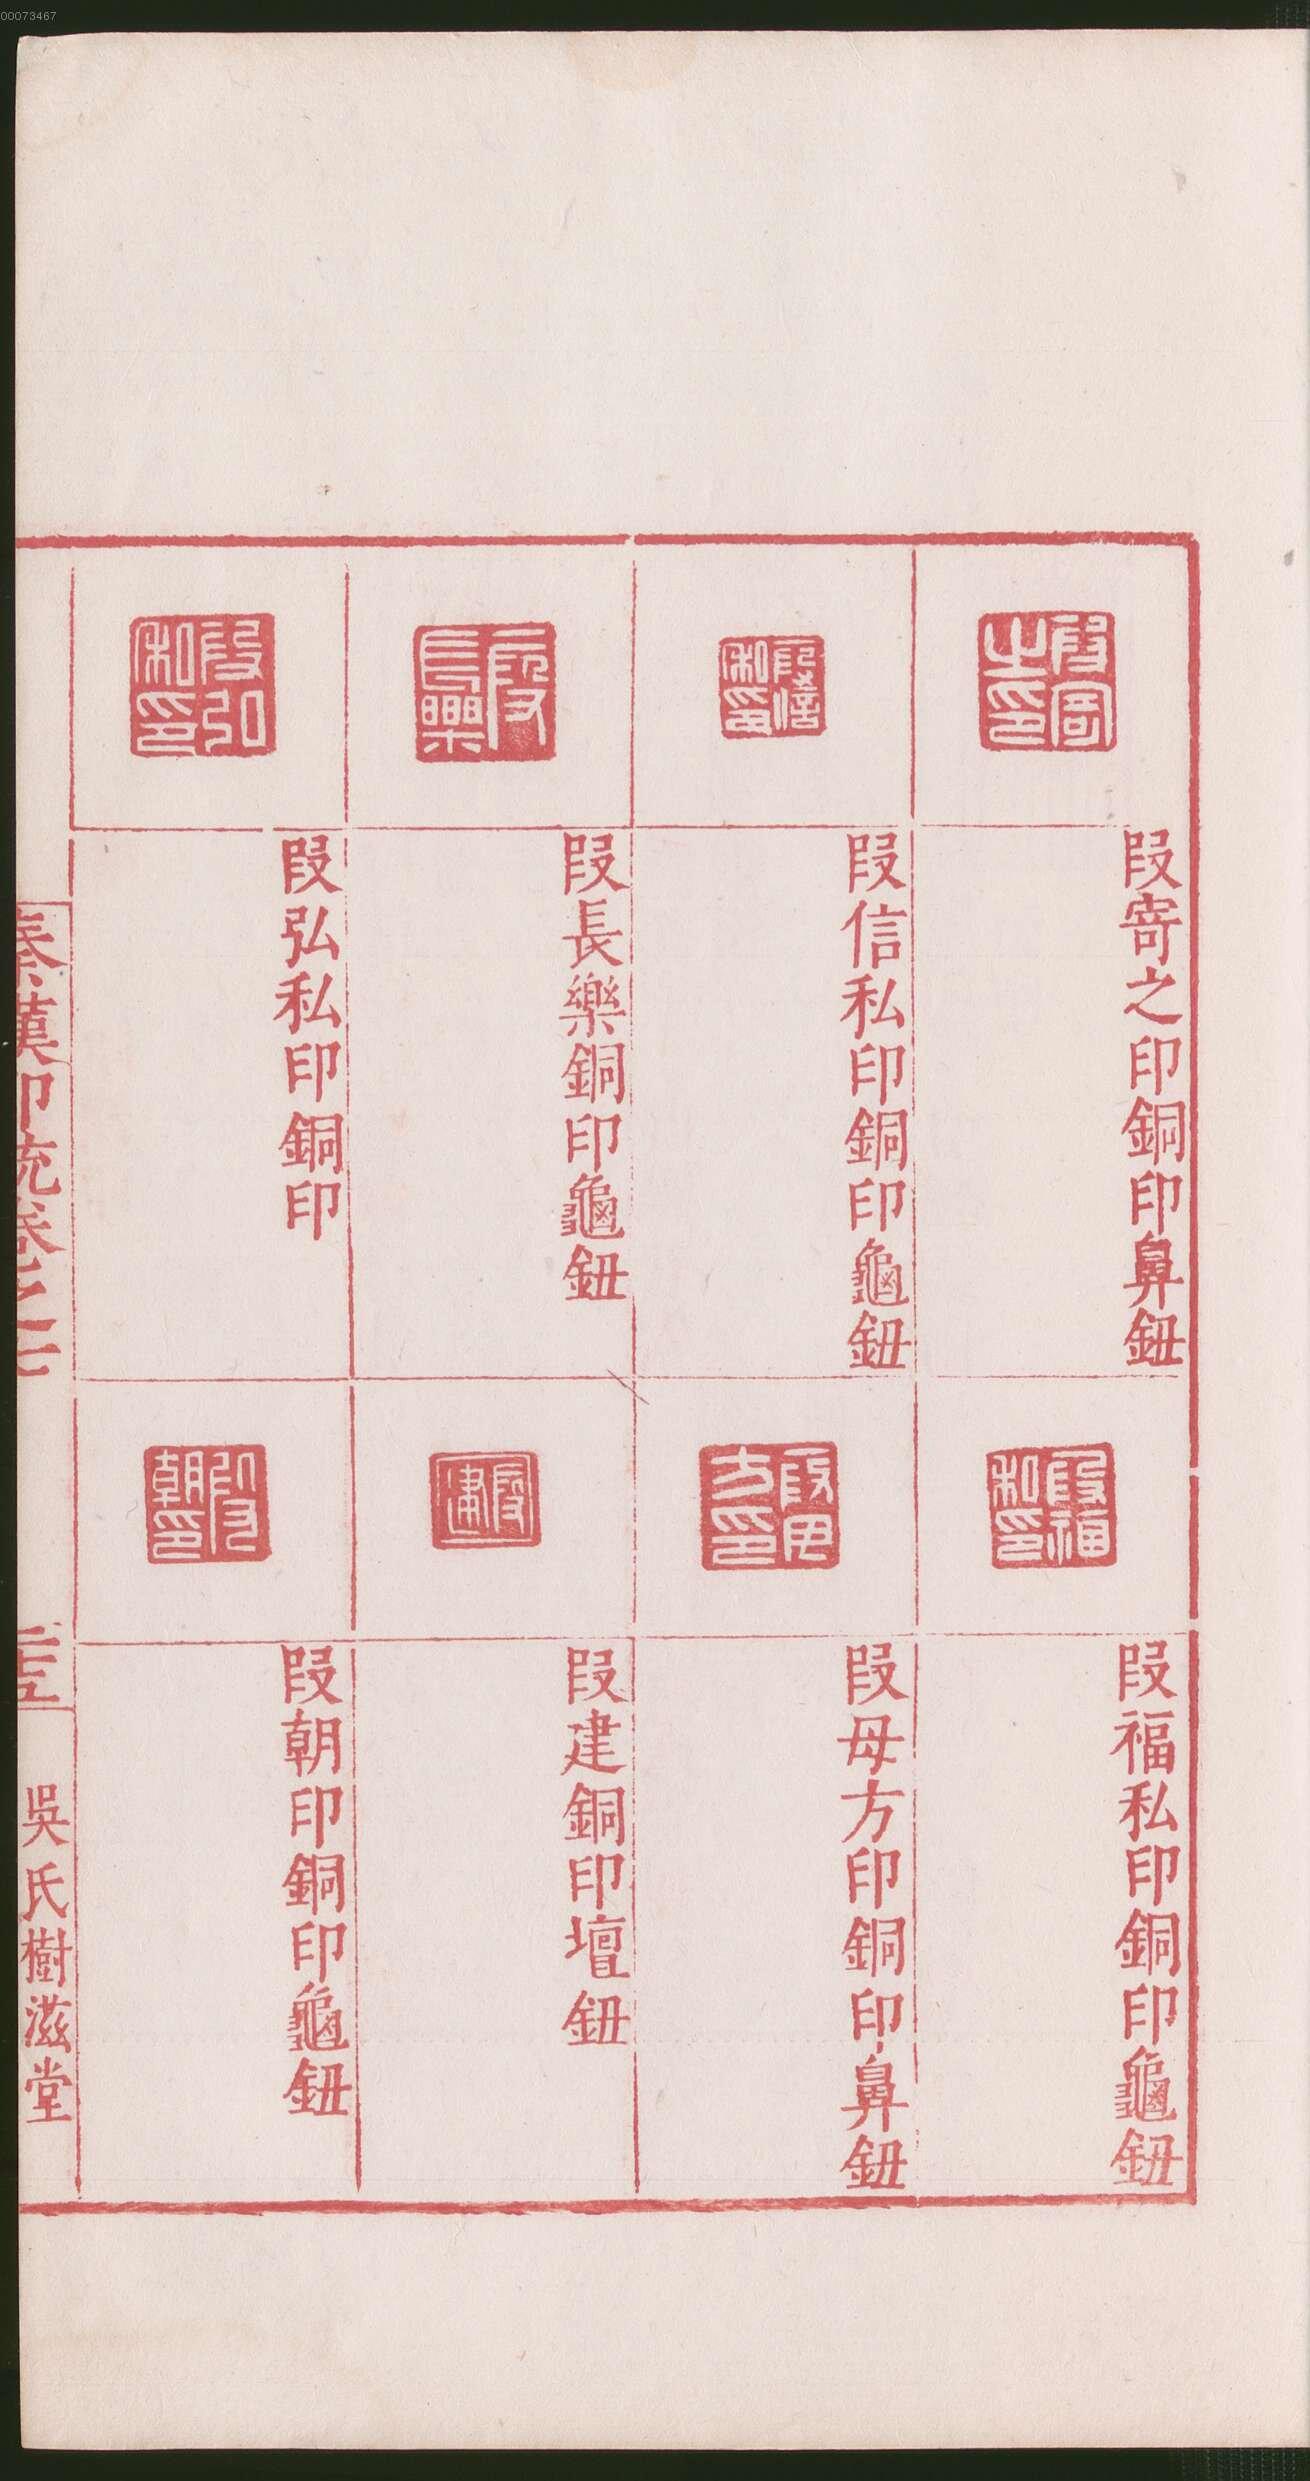 00073467
段寄之印銅印鼻鈕
段信私印銅印龜鈕
段長樂銅印龜鈕
段弘私印銅印
段福私印銅印龜鈕
段母方印銅印鼻鈕
段建銅印壇鈕
段朝印銅印龜鈕
段寄之印
段信私印
段長樂
段弘私印
段福私印
段母方印
段建
段朝印
秦漢印統卷之七
二十五
吳氏樹滋堂